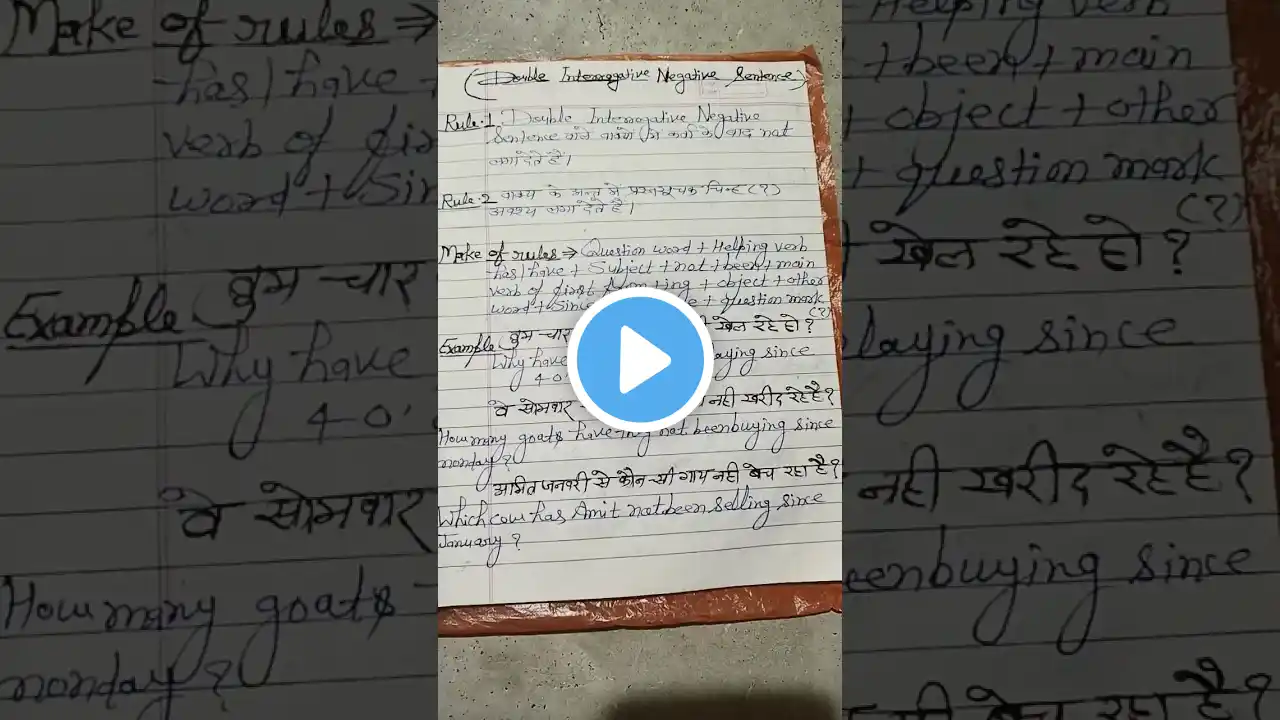 (Double Interrogative Negative Sentence)
Rule:1 Double Interrogative Negative
Sentence वाले वाक्यो में कर्ता के बाद not
लगा देते हैं।
Rule:2 वाक्य के अन्त में प्रश्नसूचक चिन्ह (?)
अवश्य लगा देते है।
Make of rules ⇒ Question word + Helping verb
has/have + Subject + not + been + main
verb of first + ing + object + other
word + Since + question mark
(?)
Example तुम चार खेल रहे हो?
Why have playing since
4-0'
वे सोमवार नही खरीद रहे है?
How many goats have they not beenbuying since
monday?
अमित जनवरी से कौन-सी गाय नही बेच रहा है?
Which cow has Amit notbeen selling since
January?